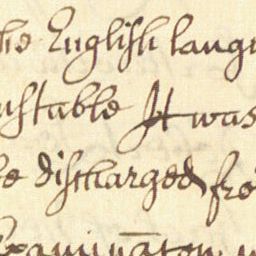 he English langu
nstable It was
be discharged fro
Examinaton